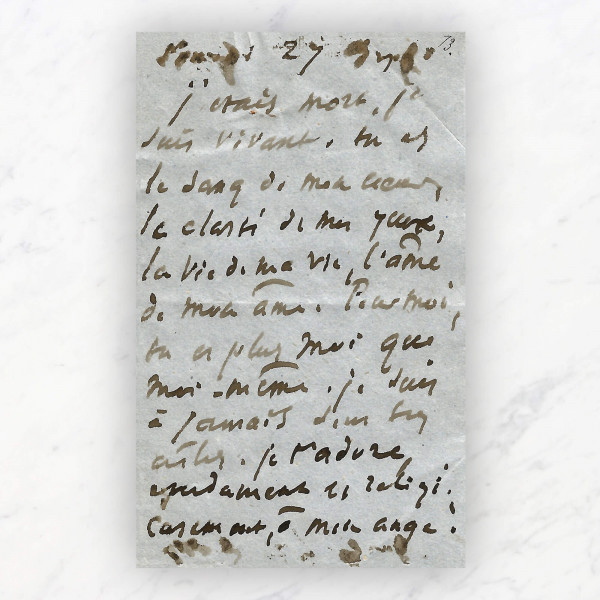 27
j'étais mort, je
suis vivant. tu es
le sang de mon coeur,
la clarté de mes yeux,
la vie de ma vie, l'âme
de mon âme. Pour moi,
tu es plus moi que
moi-même. je suis
à jamais dans tes
je t'adore
éperdument et religi-
eusement, ô mon ange!